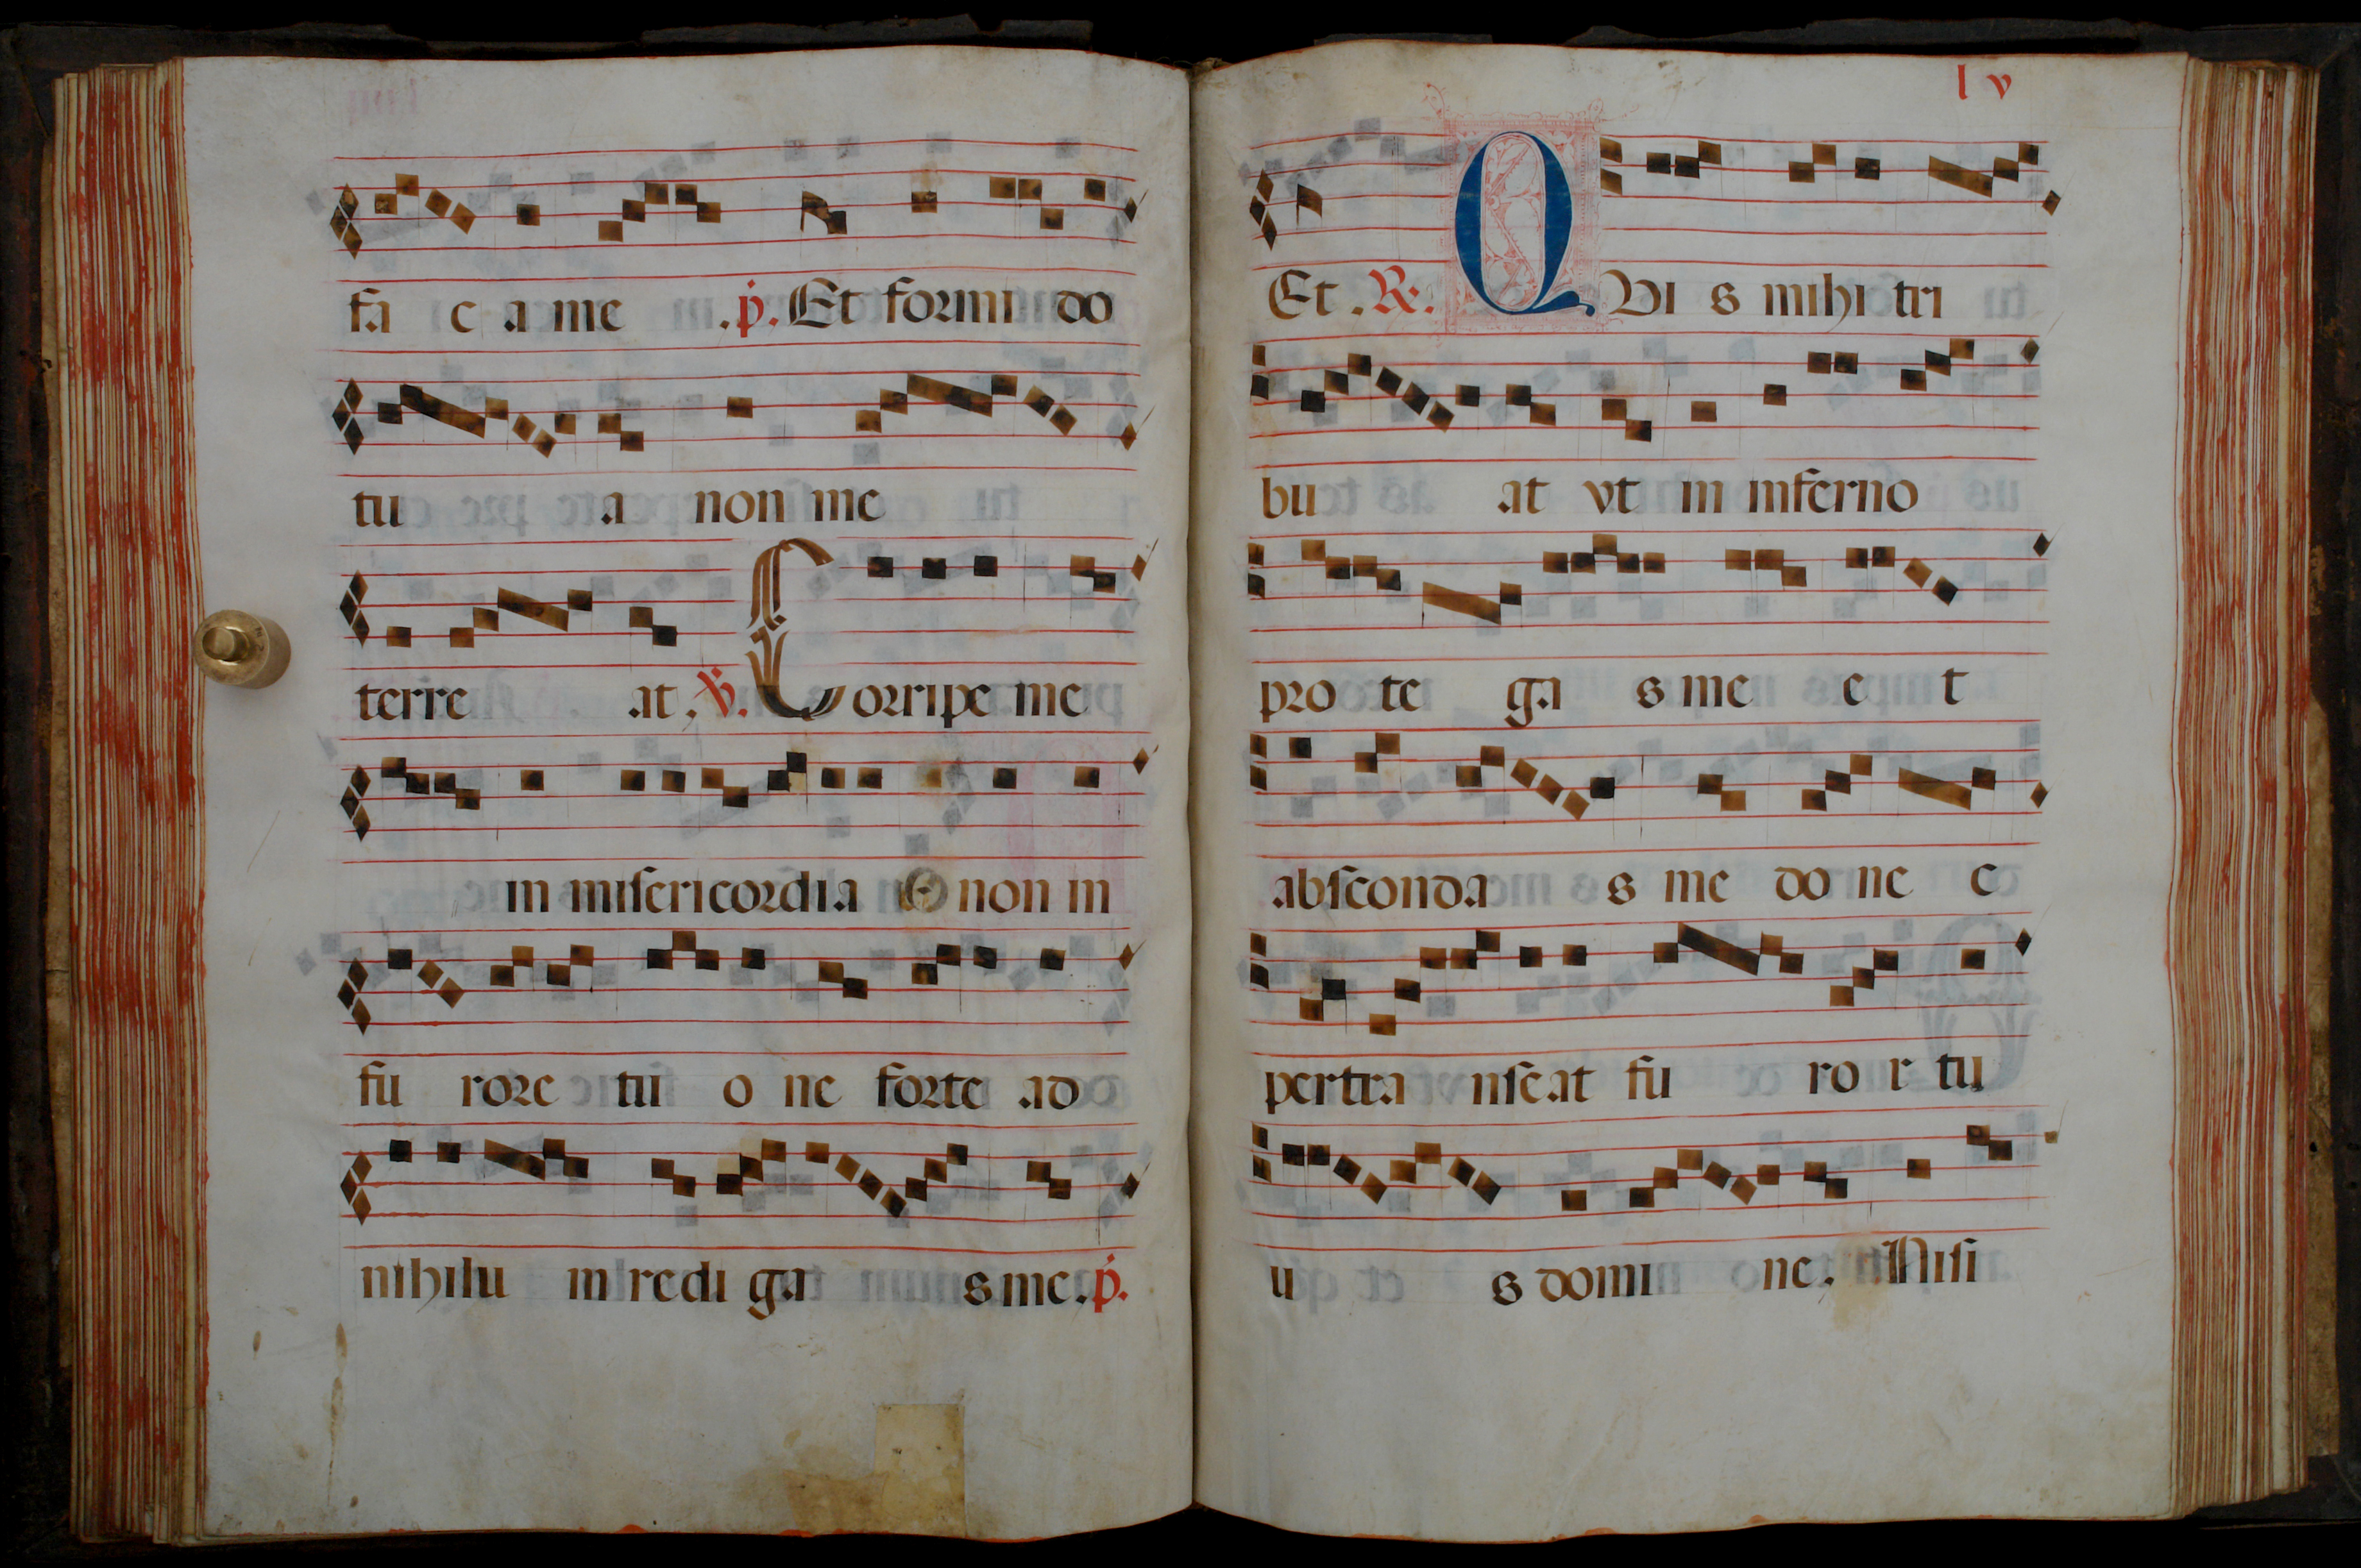 fa c a me .p. Et formi do
tu a non me
terre at, V. Corripe me
in misericordia et non in
fu rore tu o ne forte ad
nihilu in redi ga s me. p.
l v
Et. R. QVI s mihi tri
bu at vt in inferno
pro te ga s me e t
absconda s me do ne c
pertra nseat fu ro r tu
u s domi ne, Nisi